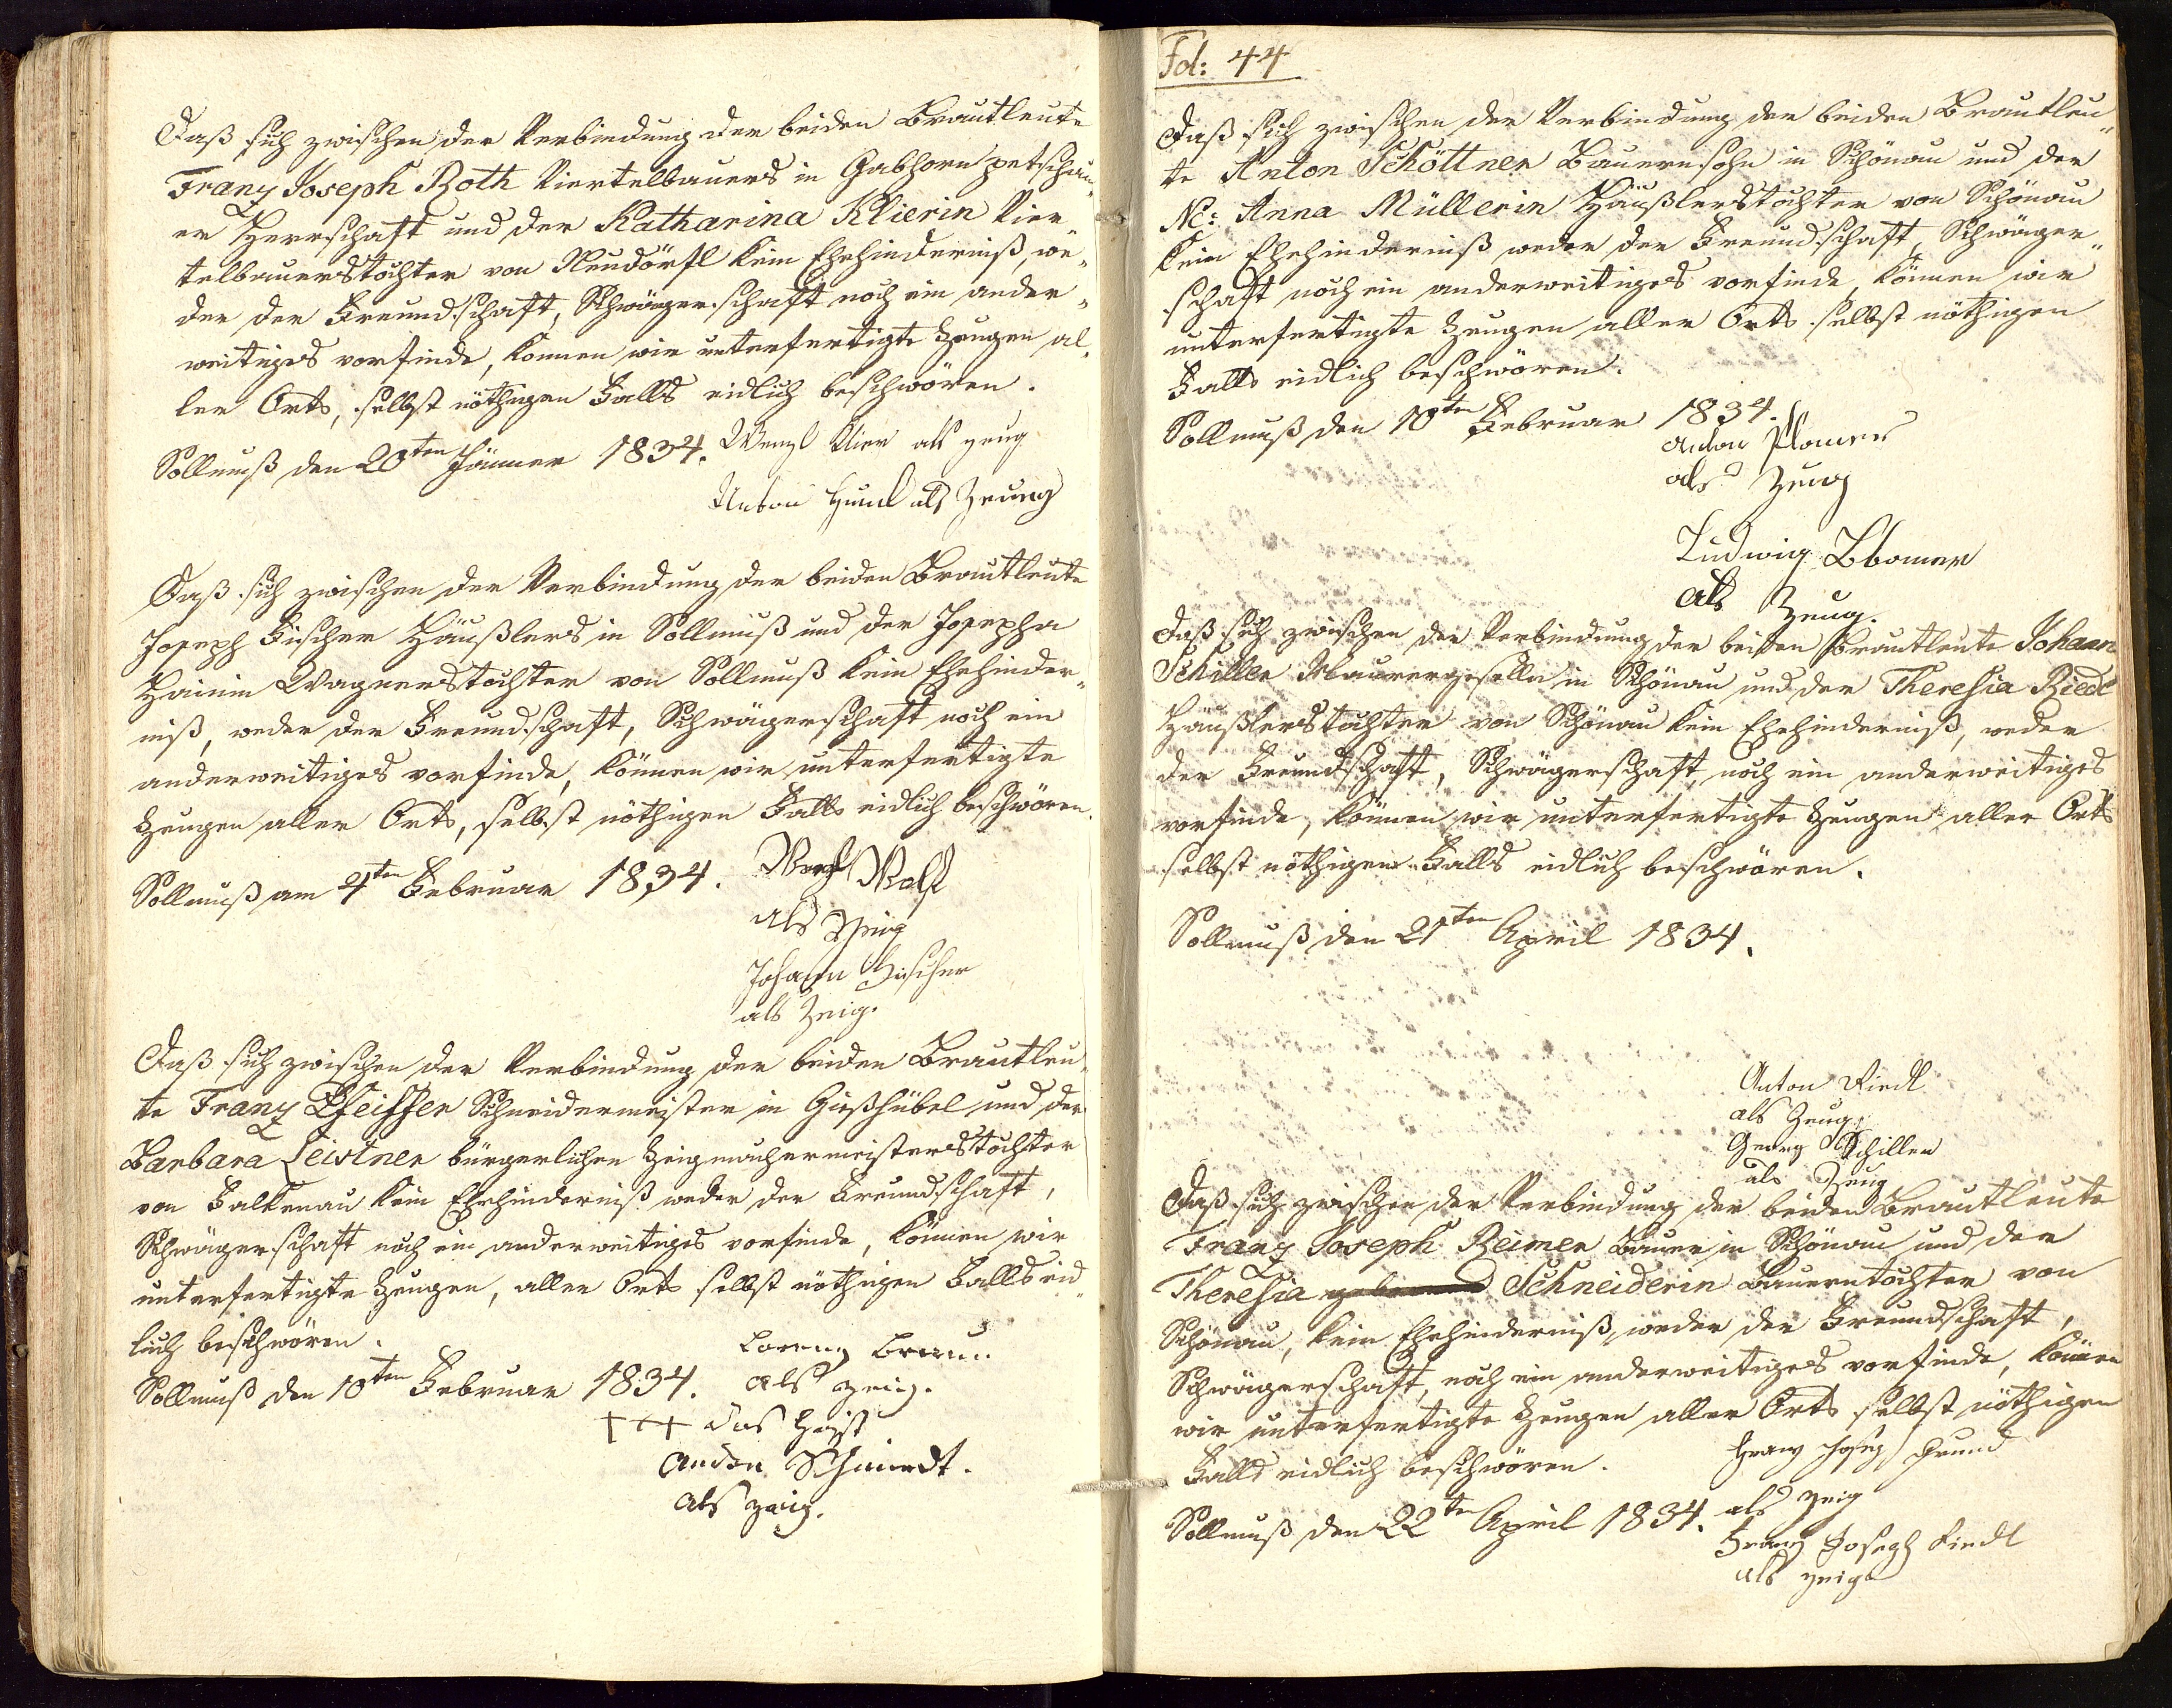 Daß sich zwischen der Verbindung der beiden Brautleute
Franz Joseph Roth Viertelbauers in Gabhorn petschau„
er Herrschaft und der Katharina Klierin Vier„
telbauerstochter von Neudörfl kein Ehehinderniß, we„
der der Freundschaft, Schwägerschaft noch ein ander„
weitiges vorfinde, können wir unterfertigte Zeugen al„
ler Orts, selbst nöthigen Falls eidlich beschwören.
Sollmuß den 20ten Jänner 1834. Wenzl Klier als zeug
Anton Hund als Zeueg
Daß sich zwischen der Verbindung der beiden Brautleute
Joseph Fischer Häußlers in Sollmuß und der Josepha
Hainin Wagnerstochter von Sollmuß kein Ehehinder„
niß, weder der Freundschaft, Schwägerschaft noch ein
anderweitiges vorfinde, können wir unterfertigte
Zeugen aller Orts, selbst nöthigen Falls eidlich beschwören.
Sollmuß am 4ten Februar 1834. Wolf
als Zeig
Johann Fischer
als Zeig.
Daß sich zwischen der Verbindung der beiden Brautleu„
te Franz Pfeiffer Schneidermeister in Gießhübel und der
Barbara Leistner bürgerlichen Zeigmachermeisterstochter
von Falkenau kein Ehehinderniß weder der Freundschaft,
Schwägerschaft noch ein anderweitiges vorfinde, können wir
unterfertigte Zeugen, aller Orts selbst nöthigen Falls eid„
lich beschwören.
Lorenz Braun
Sollmuß den 10ten Februar 1834. als zeig.
+++ das heist
Andon Schmiedt.
als zeig.
Fol: 44
Daß sich zwischen der Verbindung der beiden Brautleu„
te Anton Schöttner Bauernsohn in Schönau und der
Nc: Anna Müllerin Häußlerstochter von Schönau
kein Ehehinderniß weder der Freundschaft, Schwäger„
schaft noch ein anderweitiges vorfinde, können wir
unterfertigte Zeugen aller Orts selbst nöthigen
Falls eidlich beschwören.
Sollmuß den 10ten Februar 1834.
Anton Ploner
als Zeug
Ludwig Bbomer
als Zeug.
Daß sich zwischen der Verbindung der beiden Brautleute Johann
Schiller Maurergeselle in Schönau und der Theresia Riedl
Häußlerstochter von Schönau kein Ehehinderniß, weder
der Freundschaft, Schwägerschaft, noch ein anderweitiges
vorfinde, können wir unterfertigte Zeugen aller Orts
selbst nöthigen Falls eidlich beschwören.
Sollmuß den 21ten April 1834.
Anton Riedl
als Zeug
Georg Schiller
als Zeug
Daß sich zwischen der Verbindung der beiden Brautleute
Franz Joseph Reimer Bauer in Schönau und der
Theresia Schneiderin Bauerntochter von
Schönau, kein Ehehinderniß, weder der Freundschaft,
Schwägerschaft, noch ein anderweitiges vorfinde, können
wir unterfertigte Zeugen aller Orts selbst nöthigen
Falls eidlich beschwören.
Franz Josep Grund
Sollmuß den 22te April 1834. als zeig
Franz Joseph Riedl
als zeige